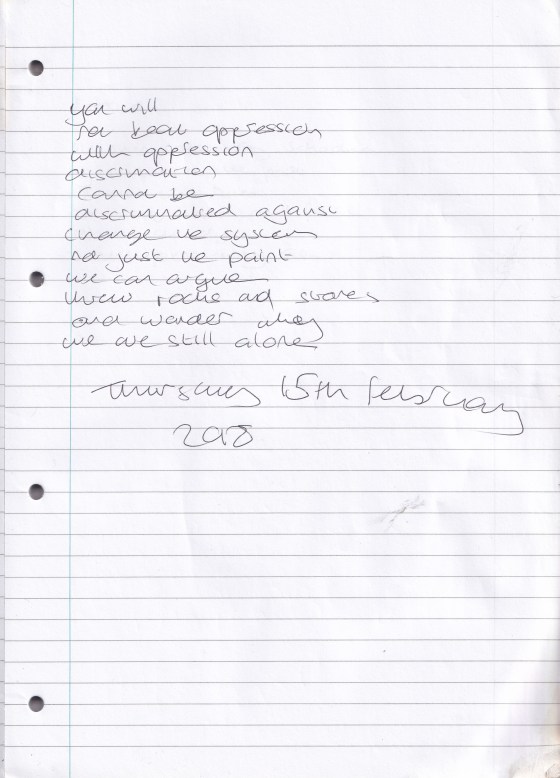 you will
not beat oppression
with oppression
discrimination
cannot be
discriminated against
change the system
not just the paint
we can argue
throw rocks and stones
and wonder why
we are still alone
Thursday 15th February
2018